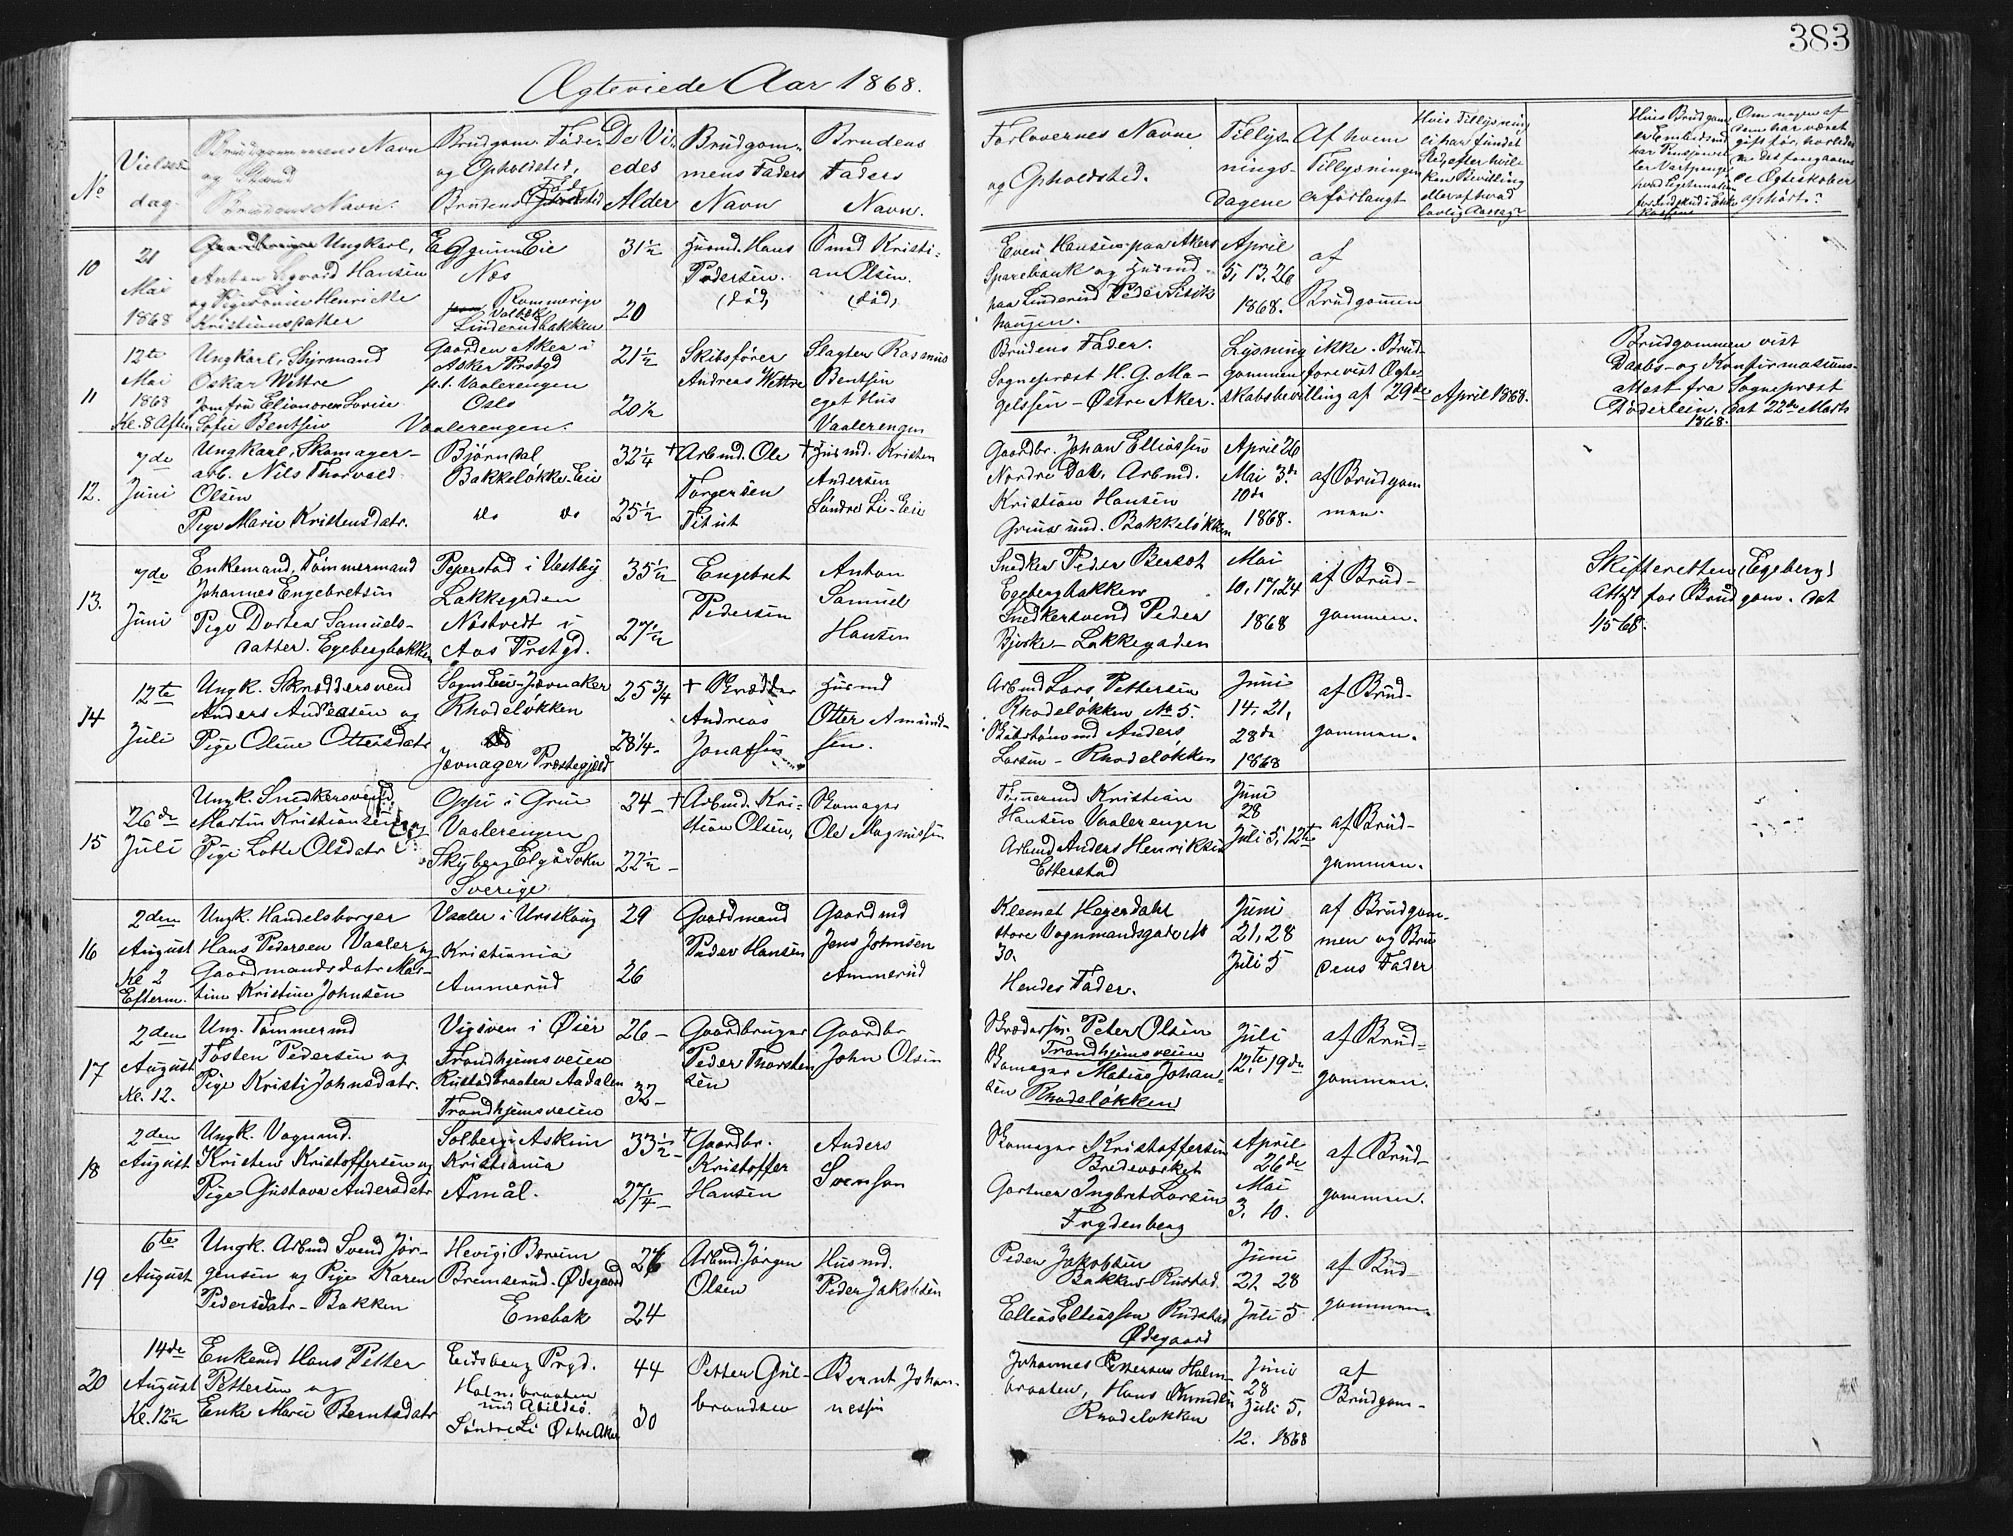 383
Ægteviede Aar 1868.
No
Vielses
dag.
Brudgommens Navn
og Stand
Brudens Navn.
Brudgom. Føde-
og Opholdsted,
Brudens Føde
De Vi-
edes
Alder
Brudgom-
mens Faders
Navn
Brudens
Faders
Navn.
Forlovernes Navne
og Opholdsted.
Tillys-
nings-
dagene
Af hvem
Tillysningen
er forlangt
Hvis Tillysning
ei har fundet
Sted, efter hvil-
ken Bevilling
eller af hvad
lovlig Aarsag
Hvis Brudgom
er Embedsmd
Om nogen af
dem har været
gift før, hvorledes
det foregaaen-
de Ægteskab er
ophørt.
10
21
Mai
1868
Ungkarl,
Anton Hansen
og Pige Henriette
Kristiansdatter
Eie
Næs
Romerige
Linderudbakken
31½
20
Husmd. Hans
Pedersen.
(død)
Smed Kristi-
an Olsen.
(død)
Even Hansen paa Akers
Sparebank og Husmd.
paa Linderud Peder
haugen.
April
5, 13, 26
1868.
af
Brudgommen
11
12te
Mai
1868
Kl. 8 Aften
Ungkarl, Styrmand
Oskar Wettre
Jomfru Elionore Lovise
Sofie Bentsen
Gaarden Aker i
Asker Prstgd
p.t. Vaalerengen
Oslo
Vaalerengen.
21½
20½
Skibsfører
Andreas Wettre
Slagter Rasmus
Bentsen
eget Hus
Vaalerengen
Brudens Fader.
Sognepræst H. G. Ma-
gelssen - Østre Aker.
Lysning ikke. Brud-
gommen foreviist Ægte-
skabsbevilling af 29de April 1868.
Brudgommen vist
Daabs- og Konfirmations-
attest fra Sognepræst
Døderlein. dat 22de Marts
1868.
12.
7de
Juni
Ungkarl, Skomager-
arb. Nils Thorvald
Olsen
Pige Marie Kristensdatr.
Bjørndal
Bakkeløkke-Eie
do do
32¼
25½
+ Arbmd. Ole
Torgersen
+ Husmd. Kristen
Andersen
Søndre Li-Eie
Gaardbr. Johan Elliassen
Nordre Dal, Arbmd.
Kristian Hansen
und. Bakkeløkken
April 26
Mai 3de
10de
1868.
af Brudgom
men.
13.
7de
Juni
Enkemand, Tømmermand
Johannes Engebretsen
Pige Dorthea Samuels-
datter. Egebergbakken
Pepperstad i Vestby
Lakkegaden
Nøstvedt i
Aas Prstgd.
35½
27½
Engebret
Pedersen
Anton
Samuel
Hansen
Snedker Peder
Egebergbakken
Snedkersvend Peder
Bjerke - Lakkegaden
Mai
10, 17, 24
1868
af Brud-
gommen.
Skifteretten (Egeberg)
Attest for Brudgom. dat
4568.
14
12te
Juli
Ungk. Skræddersvend
Anders Andresen og
Pige Oline Ottersdatr
Jevnaker
Rhodeløkken
Jævnager Præstegjæld
25¾
28¼
+ Skrædder
Andreas
Jonassen
Husmd
Otter Amund-
sen.
Arbmd Lars Pettersen
Rhodeløkken No 5.
Anders
Larsen - Rhodeløkken
Juni
14, 21,
28de
1868
af Brud-
gommen.
15
26de
Juli
Ungk. Snedkersvend
Martin Kristiansen og
Pige Lotte Olsdatr
Oppi i Grue
Vaalerengen
Skyberg Elgå Sokn
Sverige
24 -
22½ -
+ Arbmd. Kri-
stian Olsen,
Skomager
Ole Magnussen
Tømmermd Kristian
Hansen Vaalerengen
Arbmd Anders Henriksen
Etterstad
Juni
28
Juli 5, 12te
af Brud-
gommen.
16
2den
August
Kl 2
Efterm.
Ungk. Handelsborger
Hans Pedersen Vaaler og
Gaardmandsdatr Mar-
tine Kristine Johnsen
Vaaler i Urskoug
Kristiania
Ammerud
29
26
Gaardmand
Peder Hansen
Gaardmd
Jens Johnsen
Ammerud
Klemet Heyerdahl
store Vognmandsgade No
30.
Hendes Fader.
Juni
21, 28
Juli 5
af Brudgom-
men og Bru
dens Fader
17
2den
August
Kl. 12.
Ung. Tømmermd
Tosten Pedersen og
Pige Kristi Johnsdatr.
Vigsven i Øier
Trondhjemsveien
Rustadbraaten Aadalen
Trondhjemsveien
26 -
32 -
Gaardbruger
Peder Thorsten
sen
Gaardbr
John Olsen
Peter Olsen
Trondhjemsveien
Skomager Matias Johan-
sen Rhodeløkken
Juli
12te, 19de
af Brud-
gommen.
18
2den
August
Ungk. Vognmd.
Kristen Kristoffersen og
Pige Gustava Andersdatr
Solberg i Askim
Kristiania
Åmål.
33½ -
27¼
+ Gaardbr.
Kristoffer
Hansen
Anders
Svenson
Skomager Kristoffersen
Bredeværket
Gartner Ingbret Larsen
Frydenberg
April
26de
Mai
3. 10.
af Brud-
gommen.
19
6te
August
Ungk. Arbmd Svend Jør-
gensen og Pige Karen
Pedersdatr - Bakken
Hevig i Bærum
Bremserud. Ødegaard
Enebak
26
24
Arbmd. Jørgen
Olsen
Husmd.
Peder Jakobsen
Peder Jakobsen
Bakken - Rustad.
Ellias Elliassen Rudstad
Ødegaard
Juni
21. 28
Juli 5
af Brud-
gommen
20
14de
August
Kl. 12½
Enkemd Hans Petter
Pettersen og
Enke Marie Berntsdatr
Eidsberg Prgd.
Holmbraaten
und Abildsø.
Søndre Li Østre Aker
44
30
Petter Gul-
brandsen
Bernt Johan-
nessen
Johannes Pettersen Holm-
braaten, Hans Amundsen
Rhodeløkken
Juni
28
Juli 5,
12. 1868
af
Brudgom-